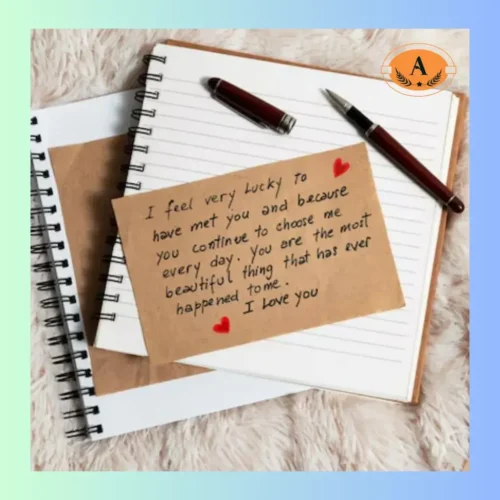 A
I feel very Lucky to
have met you and because
you continue to choose me
every day. You are the most
beautiful thing that has ever
happened to me.
I Love you